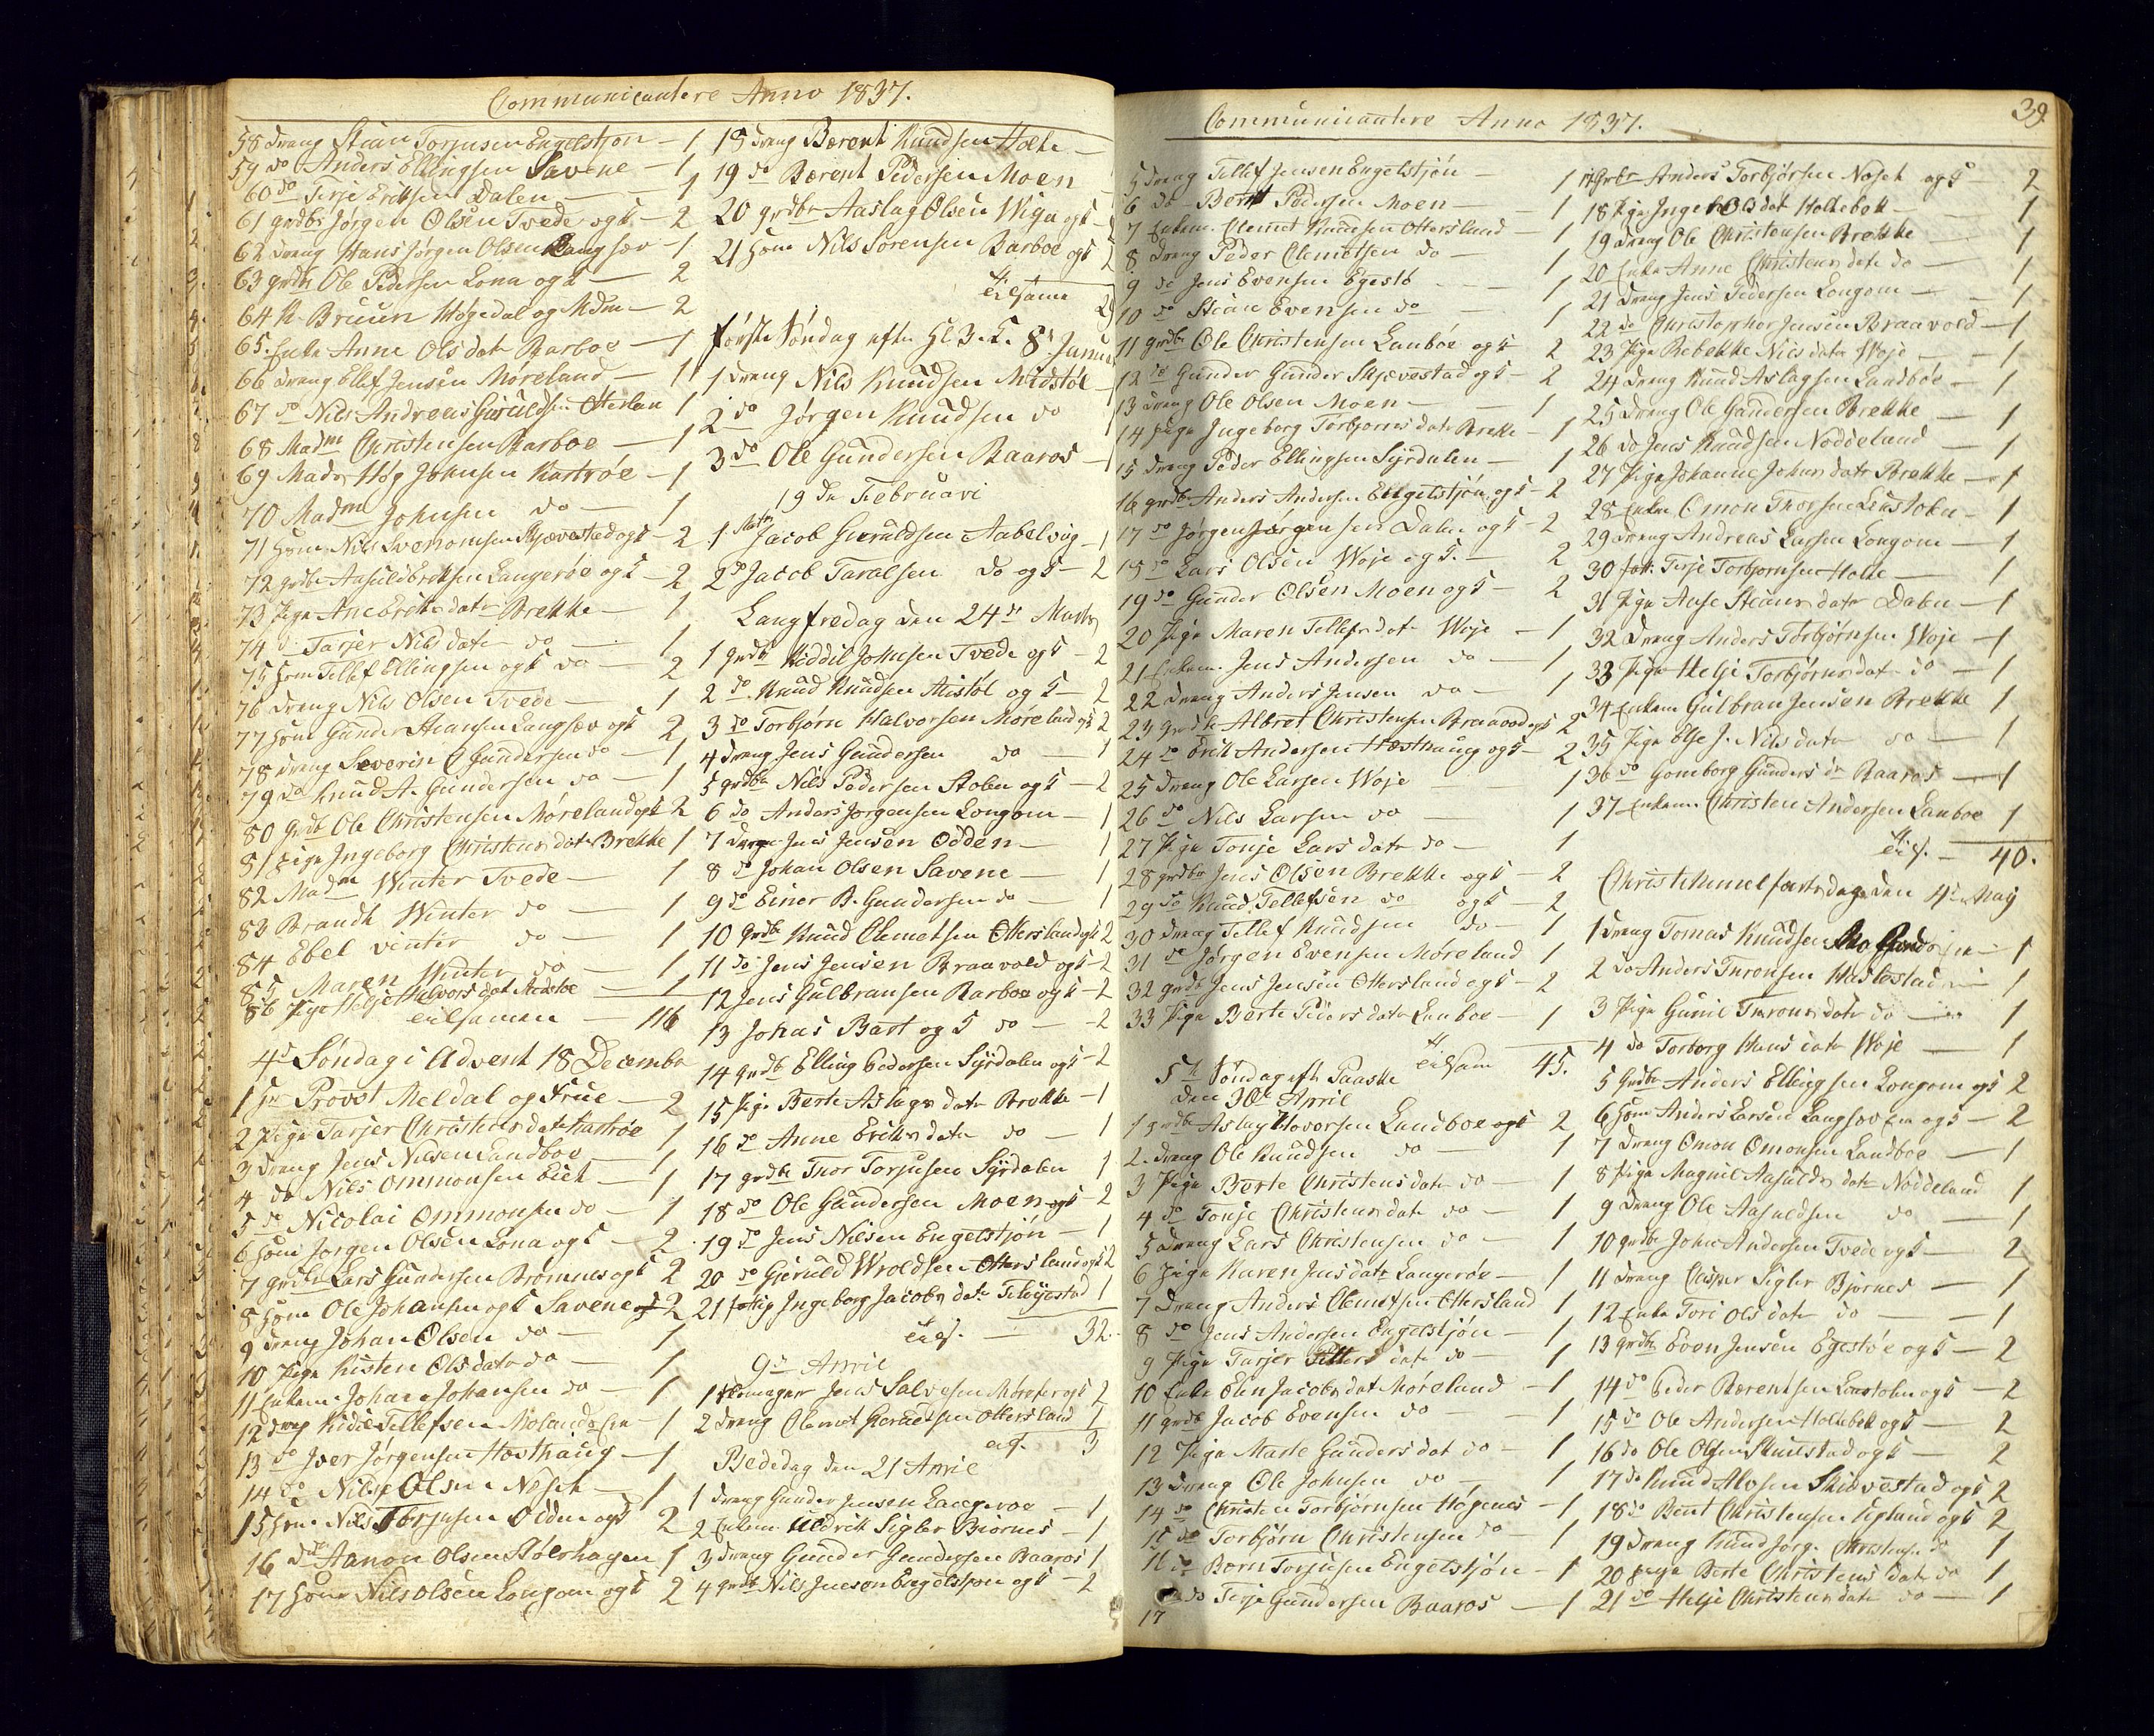 Communicantere Anno 1837.
58 Dreng Stian Torjusen Engelstjon — 1
59 do Anders Ellingsen Savene — 1
60 do Terje Eriksen Dalen — 1
61 grdbr Jørgen Olsen Tvede og K — 2
62 Dreng Hans Jørgen Olsen Langsæv — 1
63 grdbr Ole Pedersen Lona og K — 2
64 H. Bruun Høgedal og Mdm — 2
65. Enke Anne Olsdatr Barboe — 1
66 Dreng Ellef Jensen Møreland — 1
67 do Nils Andreas Otterslan 1
68 Madm Christensen Barboe — 1
69 Madm Høg Johnsen Kastrøe — 1
70 Madm Johnsen do — 1
71 Huum Nils Skjævestad og K — 2
72 grdbr Aasuld Eriksen Langerøe og K — 2
73 Pige Ane Eriksdatr Brekke — 1
74 do Tarjer Nilsdatr do — 1
75 Huum Tellef Ellingsen og K do — 2
76 Dreng Nils Olsen Tvede — 1
77 Huum Gunder Langsæv og K 2
78 Dreng Severin Gundersen do — 1
79 do Knud A. Gundersen do — 1
80 grdbr Ole Christensen Møreland og K 2
81 Pige Ingeborg Christensdatr Brekke 1
82 Madm Winter Tvede — 1
83 Brandt Winter do — 1
84 Ebel Vinter do — 1
85 Maren Winter do — 1
86 Pige Helje Halvorsdat — 1
tilsamen — 116
4de Søndag i Advent 18 Decembr
1 Hr Provst Meldal og Frue — 2
2 Pige Tarjer Christensdatr Kastrøe 1
3 Dreng Jens Nilsen Landboe — 1
4 do Nils Ommonsen — 1
5 do Nicolai Ommonsen do — 1
6 Huum Jorgen Olsen Lona og K — 2
7 grdbr Lars Gundersen Bromnes og K 2
8 Huum Ole Johansen og K Savene 2
9 Dreng Johan Olsen do — 1
10 Pige Kisten Olsdatr do — 1
11 Enkem. Johan Johansen do — 1
12 Dreng Tellefsen — 1
13 do Iver Jørgensen Hæsthaug — 1
14 do Nils Olsen Neset — 1
15 Huum Nils Torjusen Odden og K 2
16 do Aanon Olsen Stølshagen 1
17 Huum Nils Olsen Longom og K 2
18 Dreng Bærent Knudsen Holte —
19 do Bærent Pedersen Moen
20 grdbr Aaslag Olsen Wige og K —
21 Huum Nils Sørensen Barboe og K
tilsamn
første Søndag efter Hl. 3. K. 8de Januar
1 Dreng Nils Knudsen Midstøl —
2 do Jørgen Knudsen do 1
3 do Ole Gundersen Baaros — 1
19de Februari
1 Matr Jacob Gieruldsen Aabelvig — 1
2 do Jacob Taralsen do og K — 2
Langfredag den 24de Marts
1 grdbr Kiddil Johnsen Tvede og K — 2
2 do Knud Knudsen Mistøl og K — 2
3 do Torbjørn Halvorsen Møreland og K 2
4 Dreng Jens Gundersen do — 1
5 grdbr Nils Pedersen Stolen og K — 2
6 do Anders Jorgensen Longom — 1
7 Dreng Jens Jensen Odden — 1
8 do Johan Olsen Savene — 1
9 do Einer B. Gundersen do — 1
10 grdbr Knud Clemetsen Ottersland og K 2
11 do Jens Jensen Braavold og K — 2
12 Jens Gulbransen Barboe og K — 2
13 Johas Bast og K do — 2
14 grdbr Elling Pedersen Syrdalen og K — 2
15 Pige Berte Aslagsdatr Brekke — 1
16 do Anne Eriksdatr do — 1
17 grdbr Thor Torjusen Syrdalen 1
18 do Ole Gundersen Moen og K — 2
19 do Jens Nilsen Engelstjøn — 1
20 do Gieruld Wroldsen Ottersland og K 2
21 Ingeborg Jacobsdatr 1
tils. — 32.
9de April
1 Skomager Jens Salvesen og K 2
2 Dreng Clemet Gerudsen Ottersland 1
tils. 3
Bededag den 21 April
1 Dreng Gunder Jensen Langeroe — 1
2 Enkem Uldrik Sigler Biornes — 1
3 Dreng Gunder Gundersen Baaros 1
4 grdbr Nils Jensen Engelstjon og K — 2
Communicantere Anno 1837.
39
5 Dreng Tellef Jensen Engelstjón — 1
6 do Bernt Pedersen Moen — 1
7 Enkem. Clemet Knudsen Ottersland — 1
8 Dreng Peder Clemetsen do — 1
9 do Jens Evensen Egestø — 1
10 do Stian Evensen do — 1
11 grdbr Ole Christensen Lanbóe og K 2
12 do Gunder Gunder Skjævestad og K — 2
13 Dreng Ole Olsen Moen — 1
14 Pige Ingeborg Torbjornsdatr Brekke — 1
15 Dreng Peder Ellingsen Syrdalen — 1
16 grdbr Anders Andersen Engelstjón og K — 2
17 do Jørgen Jørgensen Dalen og K — 2
18 do Lars Olsen Woje og K. — 2
19 do Gunder Olsen Moen og K — 2
20 Pige Maren Tellefsdatr Woje — 1
21 Enkem. Jens Andersen do — 1
22 Dreng Anders Jensen do — 1
23 grdbr Albret Christensen Braavold og K 2
24 do Erik Andersen Hæsthaug og K — 2
25 Dreng Ole Larsen Woje 1
26 do Nils Larsen do — 1
27 Pige Tonje Larsdatr do — 1
28 grdbr Jens Olsen Brekke og K — 2
29 do Knud Tellefsen do og K — 2
30 Dreng Tellef Knudsen do — 1
31 do Jørgen Evensen Møreland 1
32 grdbr Jens Jensen Ottersland og K — 2
33 Pige Berte Pedersdatr Lanboe — 1
tilsam 45.
5te Søndag eft. Paaske
den 30te April
1 grdbr Aslag Hovorsen Landboe og K 2
2. Dreng Ole Knudsen do — 1
3 Pige Berte Christensdatr do — 1
4 do Tonje Christensdatr do — 1
5 Dreng Lars Christensen do — 1
6 Pige Karen Jensdatr Langerøe — 1
7 Dreng Anders Clemetsen Ottersland 1
8 do Jens Andersen Engelstjón — 1
9 Pige Tarjer datr do — 1
10 Enke Elen Jacobsdat Møreland — 1
11 grdbr Jacob Evensen do — 1
12 Pige Marte Gundersdat do — 1
13 Dreng Ole Johnsen do — 1
14 do Christen Torbjornsen Høgenes — 1
15 do Torbjørn Christensen do — 1
16 do Børn Torjusen Engelstjón — 1
17 do Terje Gundersen Baaros — 1
17 Grbr Anders Torbjørsen Neset og K 2
18 Pige Ingebor Olsdat Holtebek — 1
19 Dreng Ole Christensen Brekke — 1
20 Enke Anne Christensdatr do — 1
21 Dreng Jens Pedersen Longom — 1
22 do Christopher Jensen Braavold — 1
23 Pige Rebekke Nilsdatr Woje — 1
24 Dreng Knud Aslagsen Landbóe — 1
25 Dreng Ole Gundersen Brekke — 1
26 do Jens Knudsen Noddeland — 1
27 Pige Johanne Johansdatr Brekke — 1
28 Enkem Omon Thorsen — 1
29 Dreng Andreas Larsen Longom — 1
30 Terje Torbjornsen Holte — 1
31 Pige Anse Stiansdatr Dalen — 1
32 Dreng Anders Torbjørnsen Woje — 1
33 Pige Helje Torbjørnsdatr do — 1
34 Enkem Gulbran Jensen Brekke 1
35 Pige Else J. Nilsdatr do — 1
36 do Gomborg Gundersdr Baaros — 1
37 Enkem Christen Andersen Lanboe 1
tils. — 40.
Christi himmelfartsdag den 4de May
1 Dreng Tomas Knudsen — 1
2 do Anders Toronsen — 1
3 Pige Gunil Toronsdatr do — 1
4 do Torborg Hansdatr Woje — 1
5 Grdbr Anders Ellingsen Longom og K 2
6 Huum Anders Larsen og K — 2
7 Dreng Omon Omonsen Landboe — 1
8 Pige Magnil Aasuldsdatr Noddeland 1
9 Dreng Ole Aasuldsen do — 1
10 grdbr John Andersen Tvede og K — 2
11 Dreng Casper Sigler Bjornes — 1
12 Enke Tori Olsdatr do — 1
13 grdbr Even Jensen Egestóe og K — 2
14 do Peder Bærentsen og K — 2
15 do Ole Andersen Holtebek og K — 2
16 do Ole Olsen og K — 2
17 do Knud Skiævestad og K 2
18 do Bent Christensen og K 2
19 Dreng Knud Jorg. Christensen do 1
20 Pige Berte Christensdatr do 1
21 do Helje Christensdatr do — 1